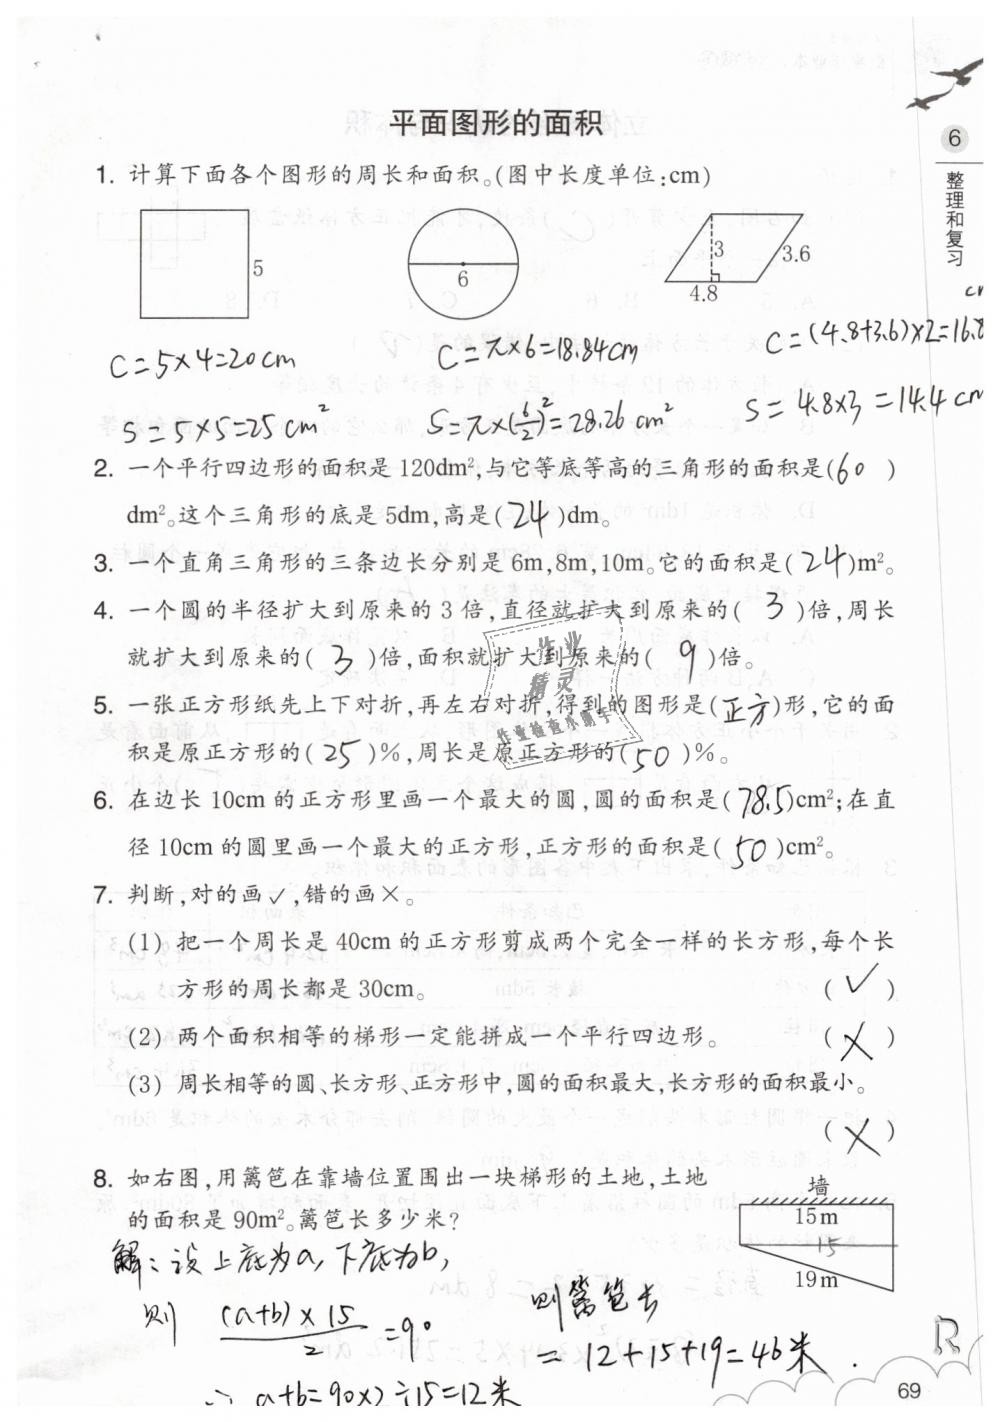 平面图形的面积
6
整理和复习
1. 计算下面各个图形的周长和面积。(图中长度单位:cm)
5
6
3
3.6
4.8
C=5×4=20cm
C=π×6=18.84cm
C=(4.8+3.6)×2=16.8
S=5×5=25cm²
S=π×(6/2)²=28.26cm²
S=4.8×3=14.4cm
2. 一个平行四边形的面积是120dm²,与它等底等高的三角形的面积是(60)
dm²。这个三角形的底是5dm,高是(24)dm。
3. 一个直角三角形的三条边长分别是6m,8m,10m。它的面积是(24)m²。
4. 一个圆的半径扩大到原来的3倍,直径就扩大到原来的(3)倍,周长
就扩大到原来的(3)倍,面积就扩大到原来的(9)倍。
作业
精灵
作业检查小助手
5. 一张正方形纸先上下对折,再左右对折,得到的图形是(正方)形,它的面
积是原正方形的(25)%,周长是原正方形的(50)%。
6. 在边长10cm的正方形里画一个最大的圆,圆的面积是(78.5)cm²;在直
径10cm的圆里画一个最大的正方形,正方形的面积是(50)cm²。
7. 判断,对的画✓,错的画×。
(1) 把一个周长是40cm的正方形剪成两个完全一样的长方形,每个长
方形的周长都是30cm。 (✓)
(2) 两个面积相等的梯形一定能拼成一个平行四边形。 (×)
(3) 周长相等的圆、长方形、正方形中,圆的面积最大,长方形的面积最小。
(×)
8. 如右图,用篱笆在靠墙位置围出一块梯形的土地,土地
的面积是90m²。篱笆长多少米?
墙
15m
15
19m
解:设上底为a,下底为b,
则 (a+b)×15/2=90
∴ a+b=90×2÷15=12米
则篱笆长
=12+15+19=46米.
R
69